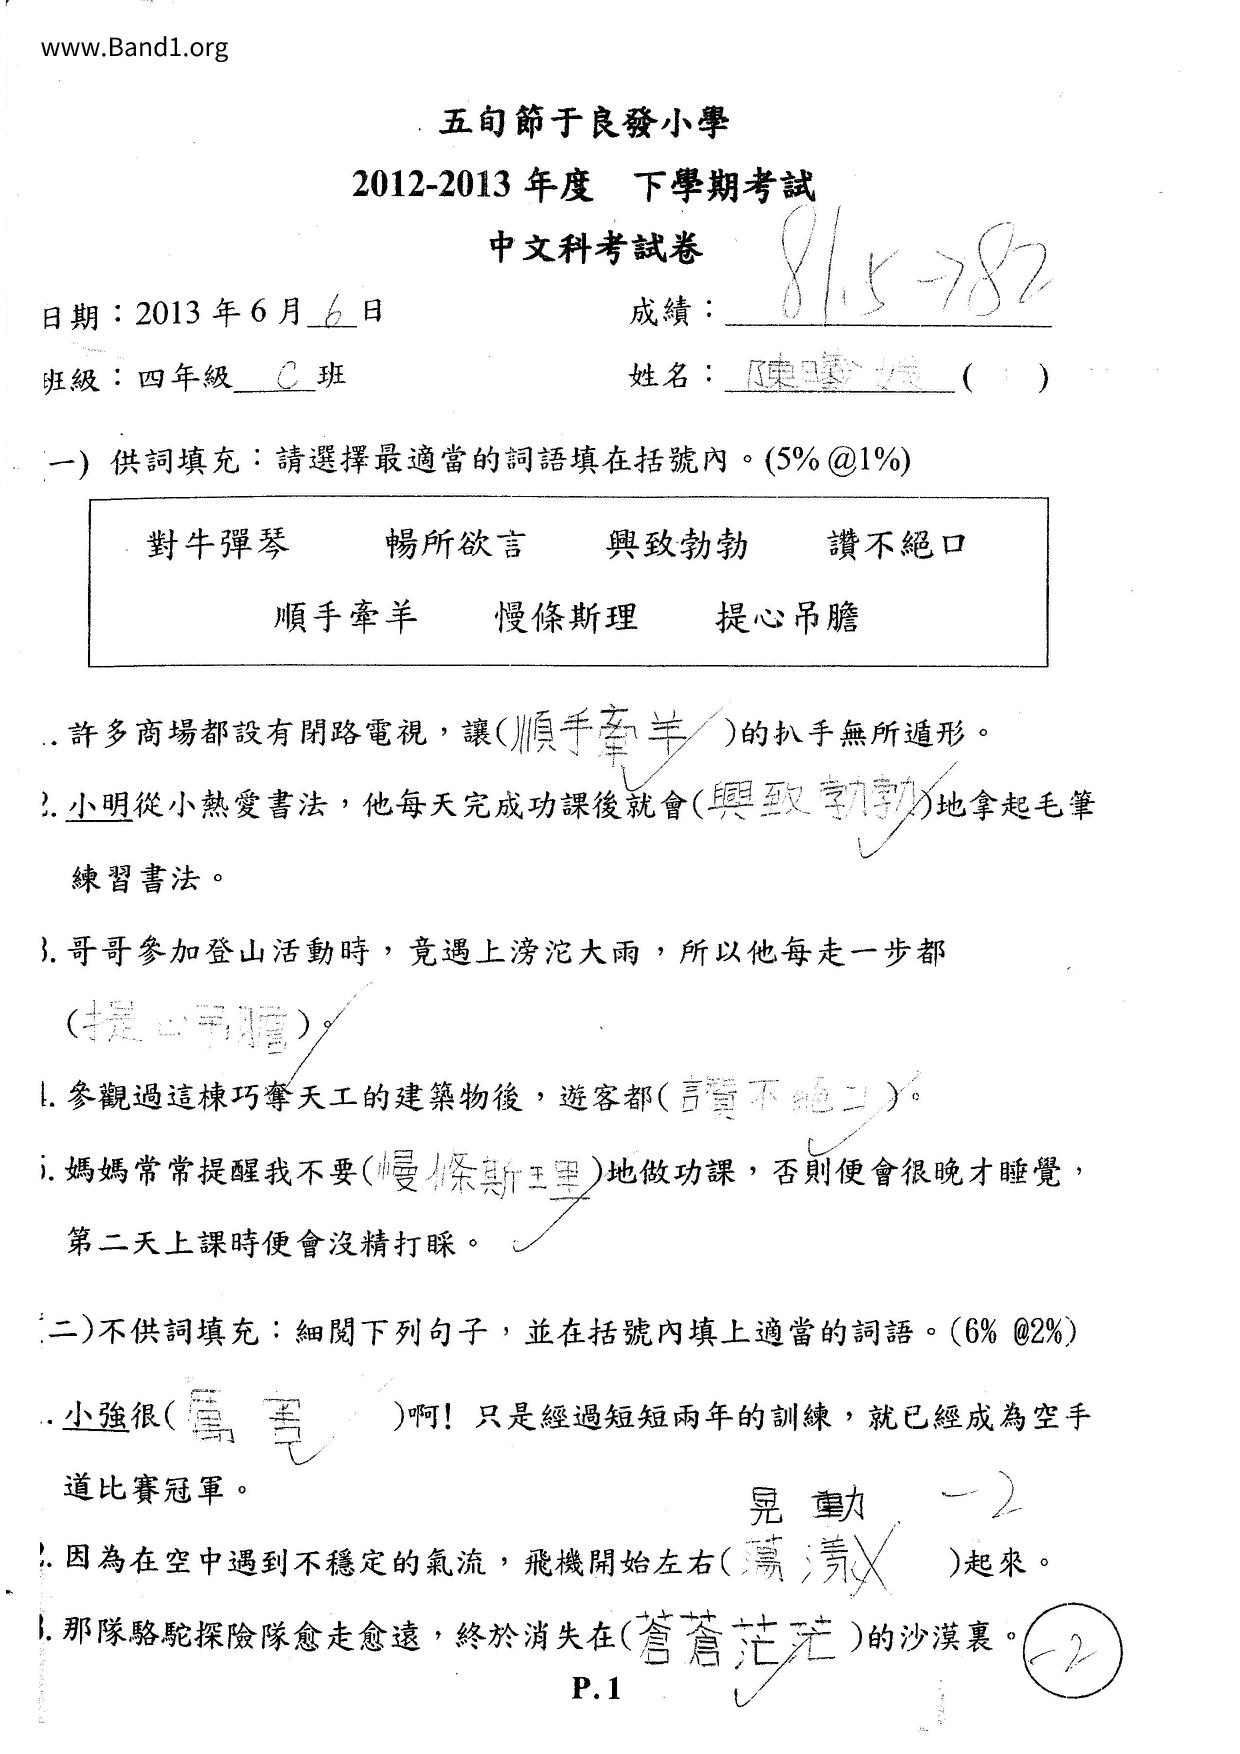 www.Band1.org
五旬節于良發小學
2012-2013 年度 下學期考試
中文科考試卷
81.5→82
日期：2013 年 6 月 6 日 成績：
班級：四年級 C 班 姓名：陳 ( )
一) 供詞填充：請選擇最適當的詞語填在括號內。(5% @1%)
對牛彈琴 暢所欲言 興致勃勃 讚不絕口
順手牽羊 慢條斯理 提心吊膽
. 許多商場都設有閉路電視，讓(順手牽羊)的扒手無所遁形。
2. 小明從小熱愛書法，他每天完成功課後就會(興致勃勃)地拿起毛筆
練習書法。
3. 哥哥參加登山活動時，竟遇上滂沱大雨，所以他每走一步都
(提心吊膽)。
4. 參觀過這棟巧奪天工的建築物後，遊客都(讚不絕口)。
5. 媽媽常常提醒我不要(慢條斯理)地做功課，否則便會很晚才睡覺，
第二天上課時便會沒精打睬。
二)不供詞填充：細閱下列句子，並在括號內填上適當的詞語。(6% @2%)
. 小強很(厲害)啊！只是經過短短兩年的訓練，就已經成為空手
道比賽冠軍。
晃動 -2
2. 因為在空中遇到不穩定的氣流，飛機開始左右(蕩漾)起來。
3. 那隊駱駝探險隊愈走愈遠，終於消失在(蒼蒼茫茫)的沙漠裏。
-2
P.1